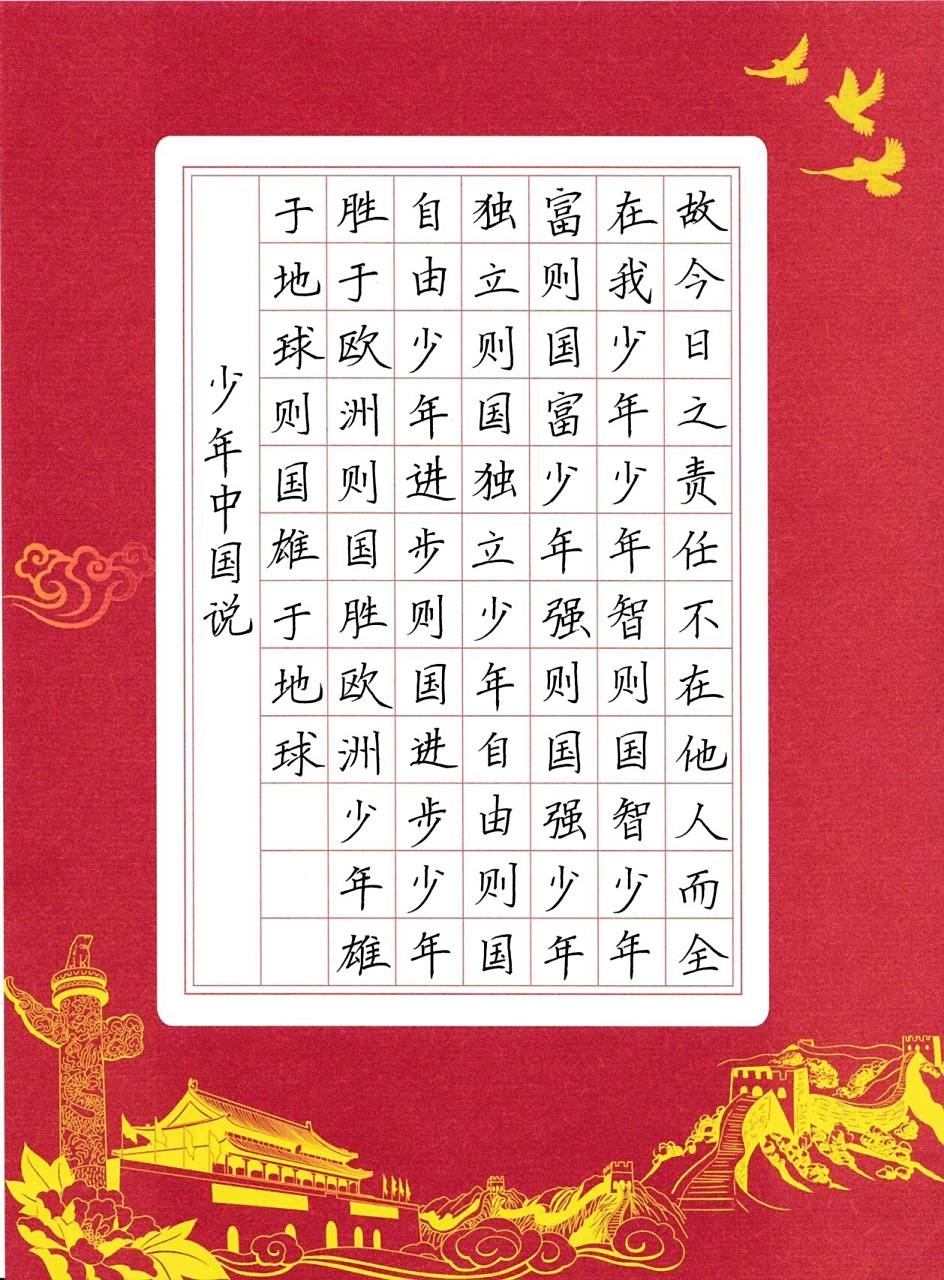 故今日之责任不在他人而全
在我少年少年智则国智少年
富则国富少年强则国强少年
独立则国独立少年自由则国
自由少年进步则国进步少年
胜于欧洲则国胜欧洲少年雄
于地球则国雄于地球
少年中国说